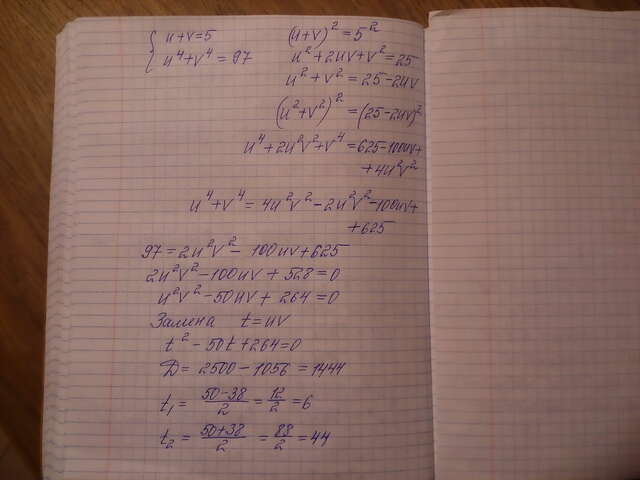 { u+v=5
u⁴+v⁴=97
(u+v)²=5²
u²+2uv+v²=25
u²+v²=25-2uv
(u²+v²)²=(25-2uv)²
u⁴+2u²v²+v⁴=625-100uv+
+4u²v²
u⁴+v⁴=4u²v²-2u²v²-100uv+
+625
97=2u²v²-100uv+625
2u²v²-100uv+528=0
u²v²-50uv+264=0
Замена t=uv
t²-50t+264=0
D=2500-1056=1444
t₁=(50-38)/2=12/2=6
t₂=(50+38)/2=88/2=44